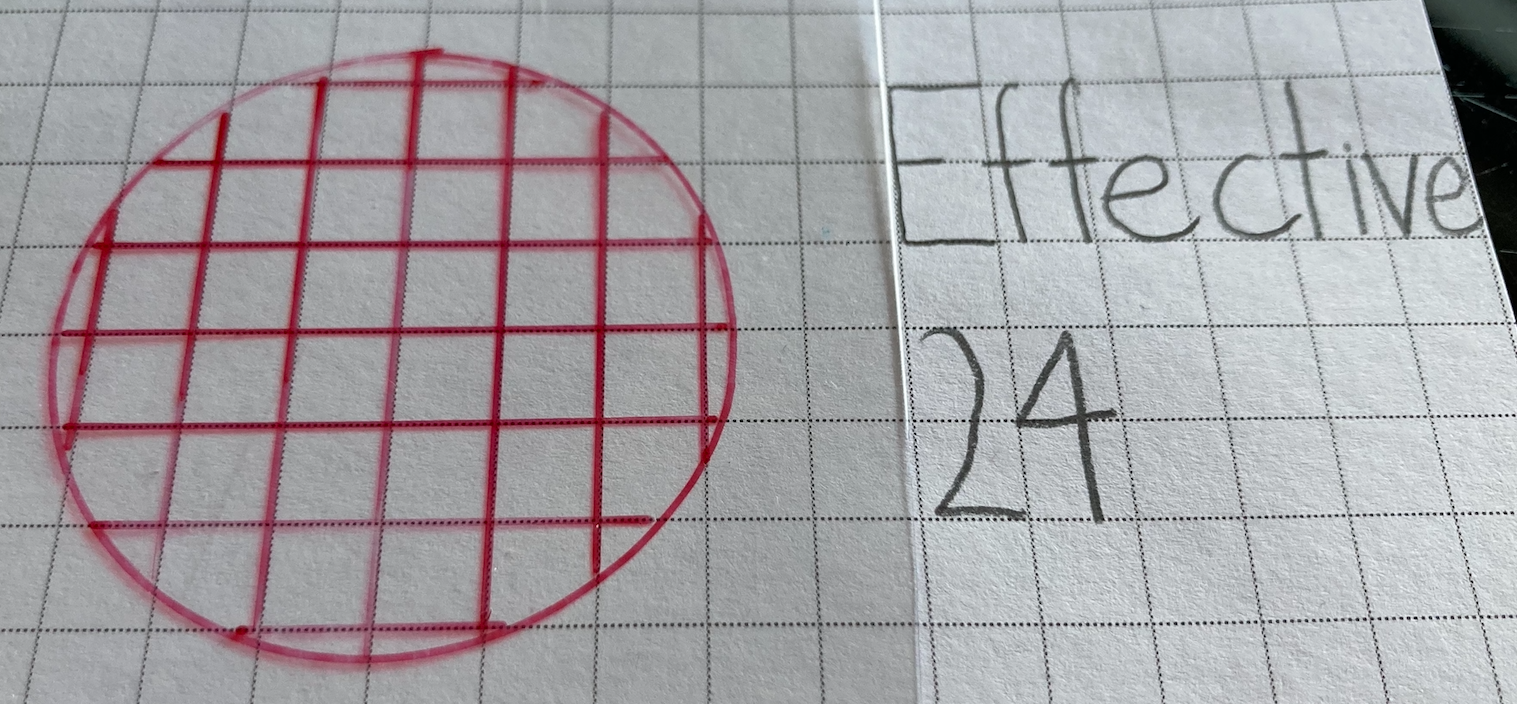 Effective
24